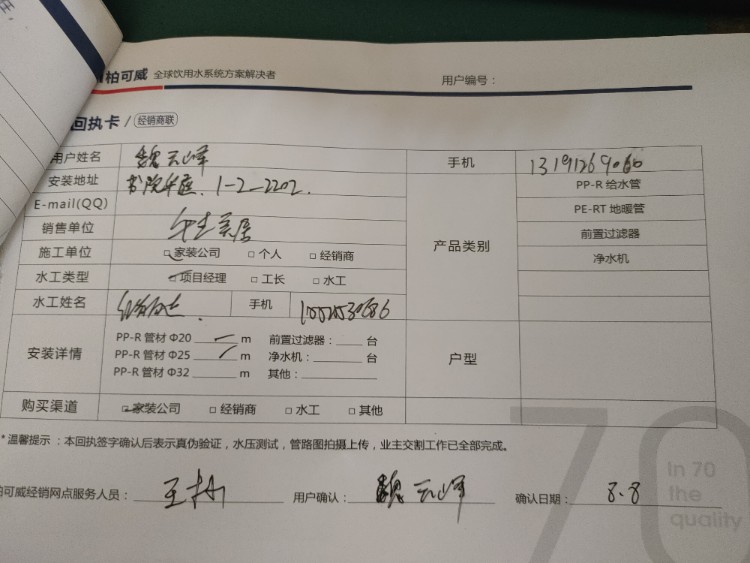 柏可威 全球饮用水系统方案解决者 用户编号：
回执卡 / 经销商联
用户姓名 魏云峰 手机 13191269060
安装地址 书院华庭. 1-2-2202.
E-mail(QQ)
销售单位
施工单位 □家装公司 □个人 □经销商
水工类型 □项目经理 □工长 □水工
水工姓名 手机
产品类别
PP-R 给水管
PE-RT 地暖管
前置过滤器
净水机
安装详情
PP-R 管材 Φ20 m 前置过滤器： 台
PP-R 管材 Φ25 m 净水机： 台
PP-R 管材 Φ32 m 其他：
户型
购买渠道 □家装公司 □经销商 □水工 □其他
* 温馨提示：本回执签字确认后表示真伪验证，水压测试，管路图拍摄上传，业主交割工作已全部完成。
柏可威经销网点服务人员： 用户确认： 魏云峰 确认日期： 8.8
70
In 70
the
quality